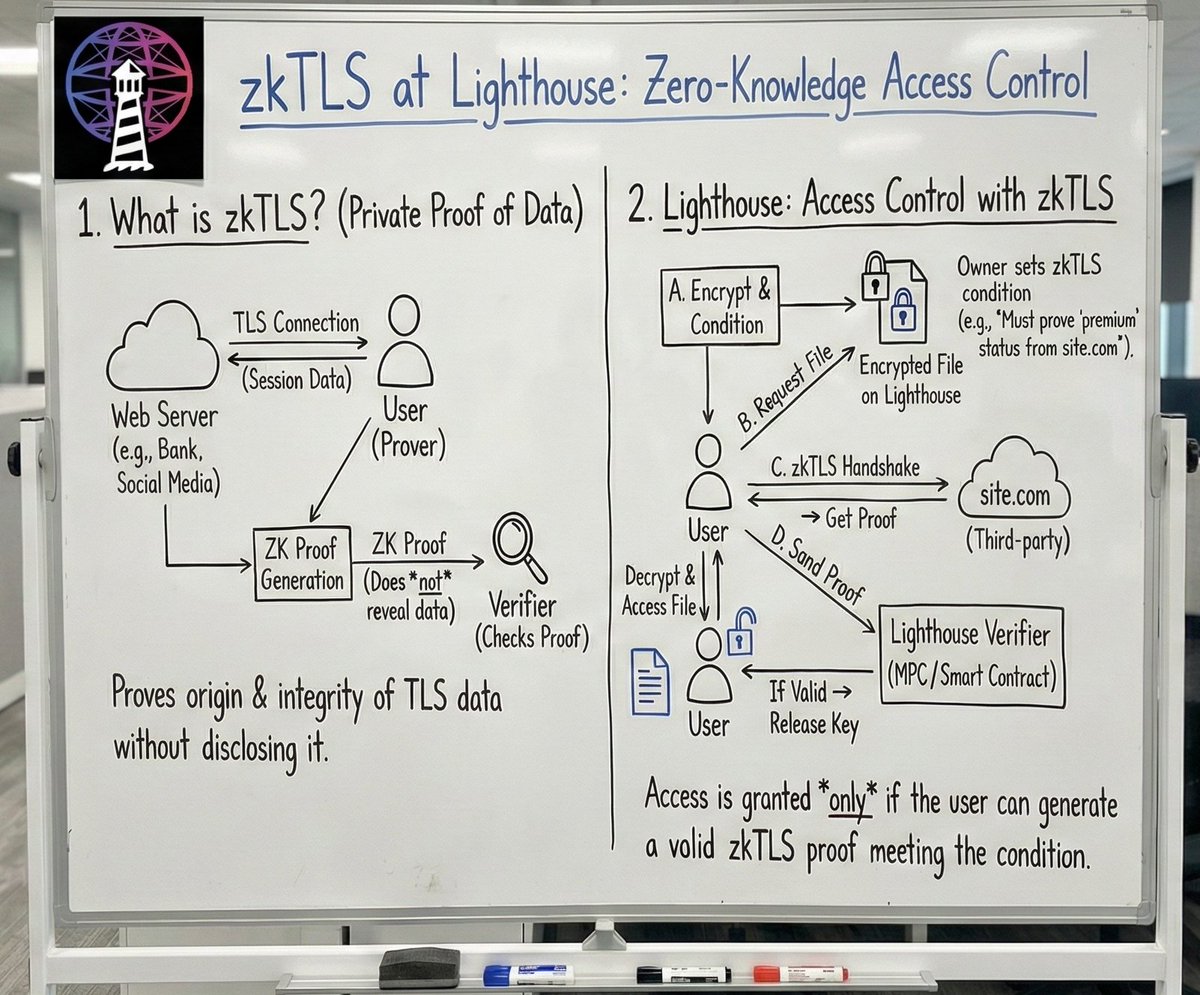 zkTLS at Lighthouse: Zero-Knowledge Access Control
1. What is zkTLS? (Private Proof of Data)
TLS Connection
(Session Data)
Web Server
(e.g., Bank,
Social Media)
User
(Prover)
ZK Proof
Generation
ZK Proof
(Does *not*
reveal data)
Verifier
(Checks Proof)
Proves origin & integrity of TLS data
without disclosing it.
2. Lighthouse: Access Control with zkTLS
A. Encrypt &
Condition
Owner sets zkTLS
condition
(e.g., "Must prove 'premium'
status from site.com").
Encrypted File
on Lighthouse
B. Request File
C. zkTLS Handshake
→ Get Proof
site.com
(Third-party)
User
D. Sand Proof
Decrypt &
Access File
Lighthouse Verifier
(MPC/Smart Contract)
If Valid →
Release Key
User
Access is granted *only* if the user can generate
a valid zkTLS proof meeting the condition.